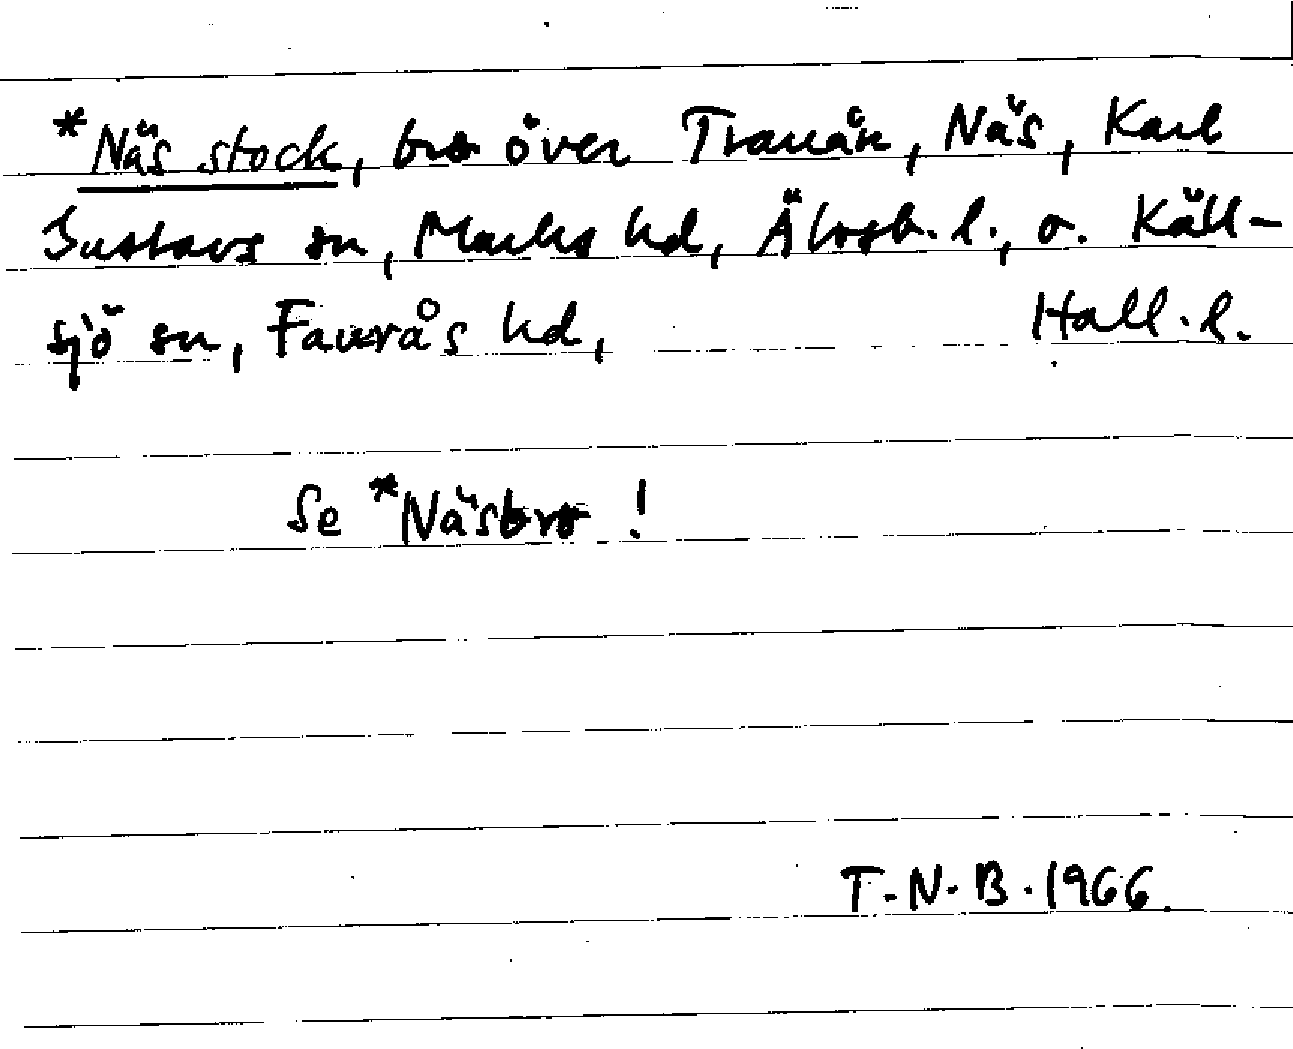 *Näs stock, bro över Tranån, Näs, Karl
Gustavs sn, Marks hd, Älvsb. l., o. Käll-
sjö sn, Faurås hd, Hall. l.
Se *Näsbro !
T.N.B. 1966.